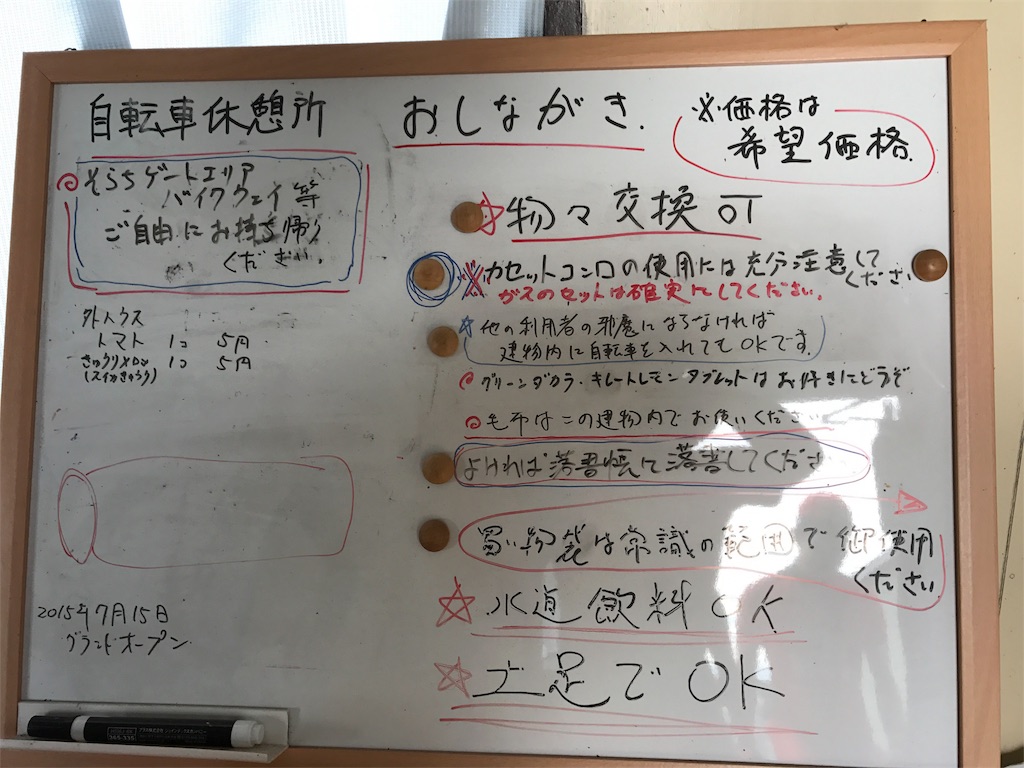 自転車休憩所
おしながき
※価格は
希望価格
そらちゲートエリア
バイクウェイ等
ご自由にお持ち帰り
ください。
外ハウス
トマト 1コ 5円
きゅうりメロン 1コ 5円
(スイカきゅうり)
2015年7月15日
グランドオープン
☆物々交換可
※カセットコンロの使用には充分注意して
ください
ガスのセットは確実にしてください。
☆他の利用者の邪魔にならなければ
建物内に自転車を入れてもOKです。
グリーンダカラ・キレートレモンタブレットはお好きにどうぞ
毛布はこの建物内でお使いください
よければ落書帳に落書してくださ
買い物袋は常識の範囲で御使用
ください
☆水道飲料OK
☆土足でOK